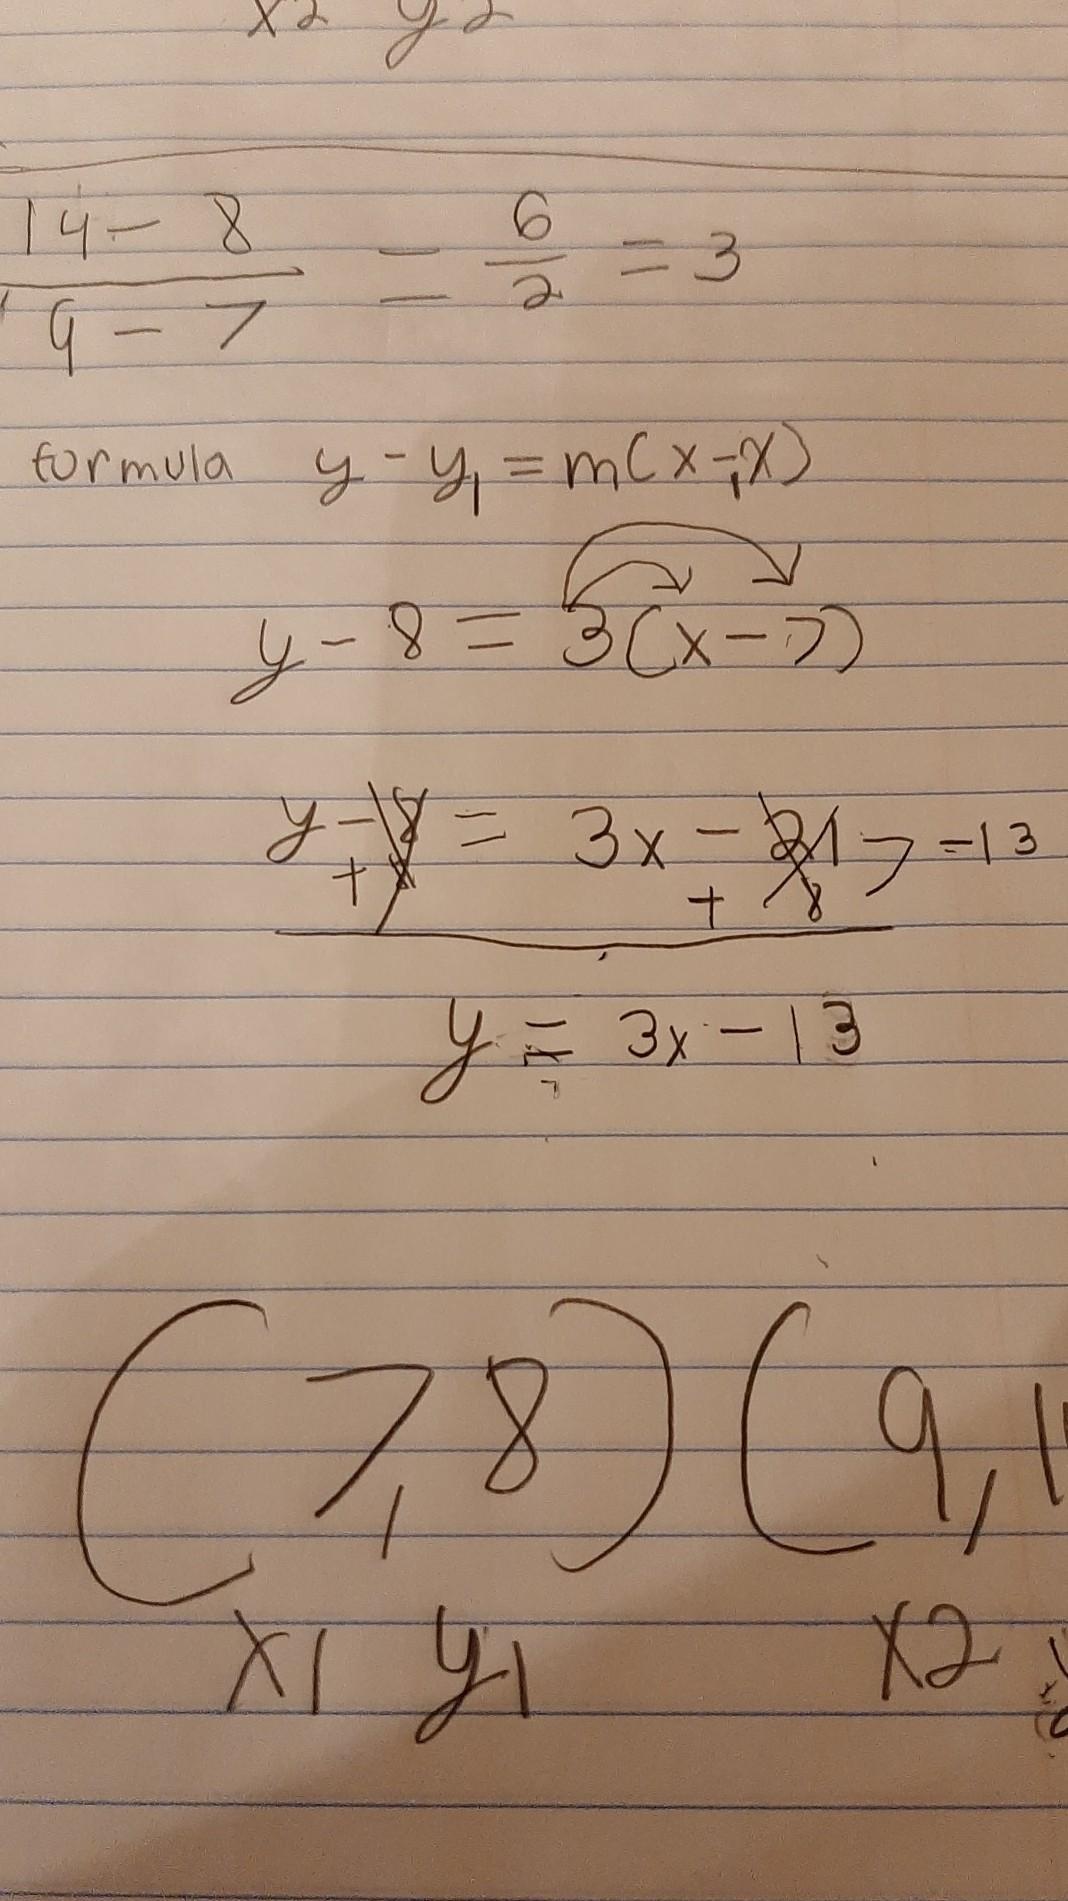 x2 y2
14 - 8 = 6 = 3
9 - 7 2
formula y - y1 = m(x - 1x)
y - 8 = 3(x - 7)
y - 8 = 3x - 21 -13
+ 8 + 8
y = 3x - 13
(7, 8) (9, 1
x1 y1 x2